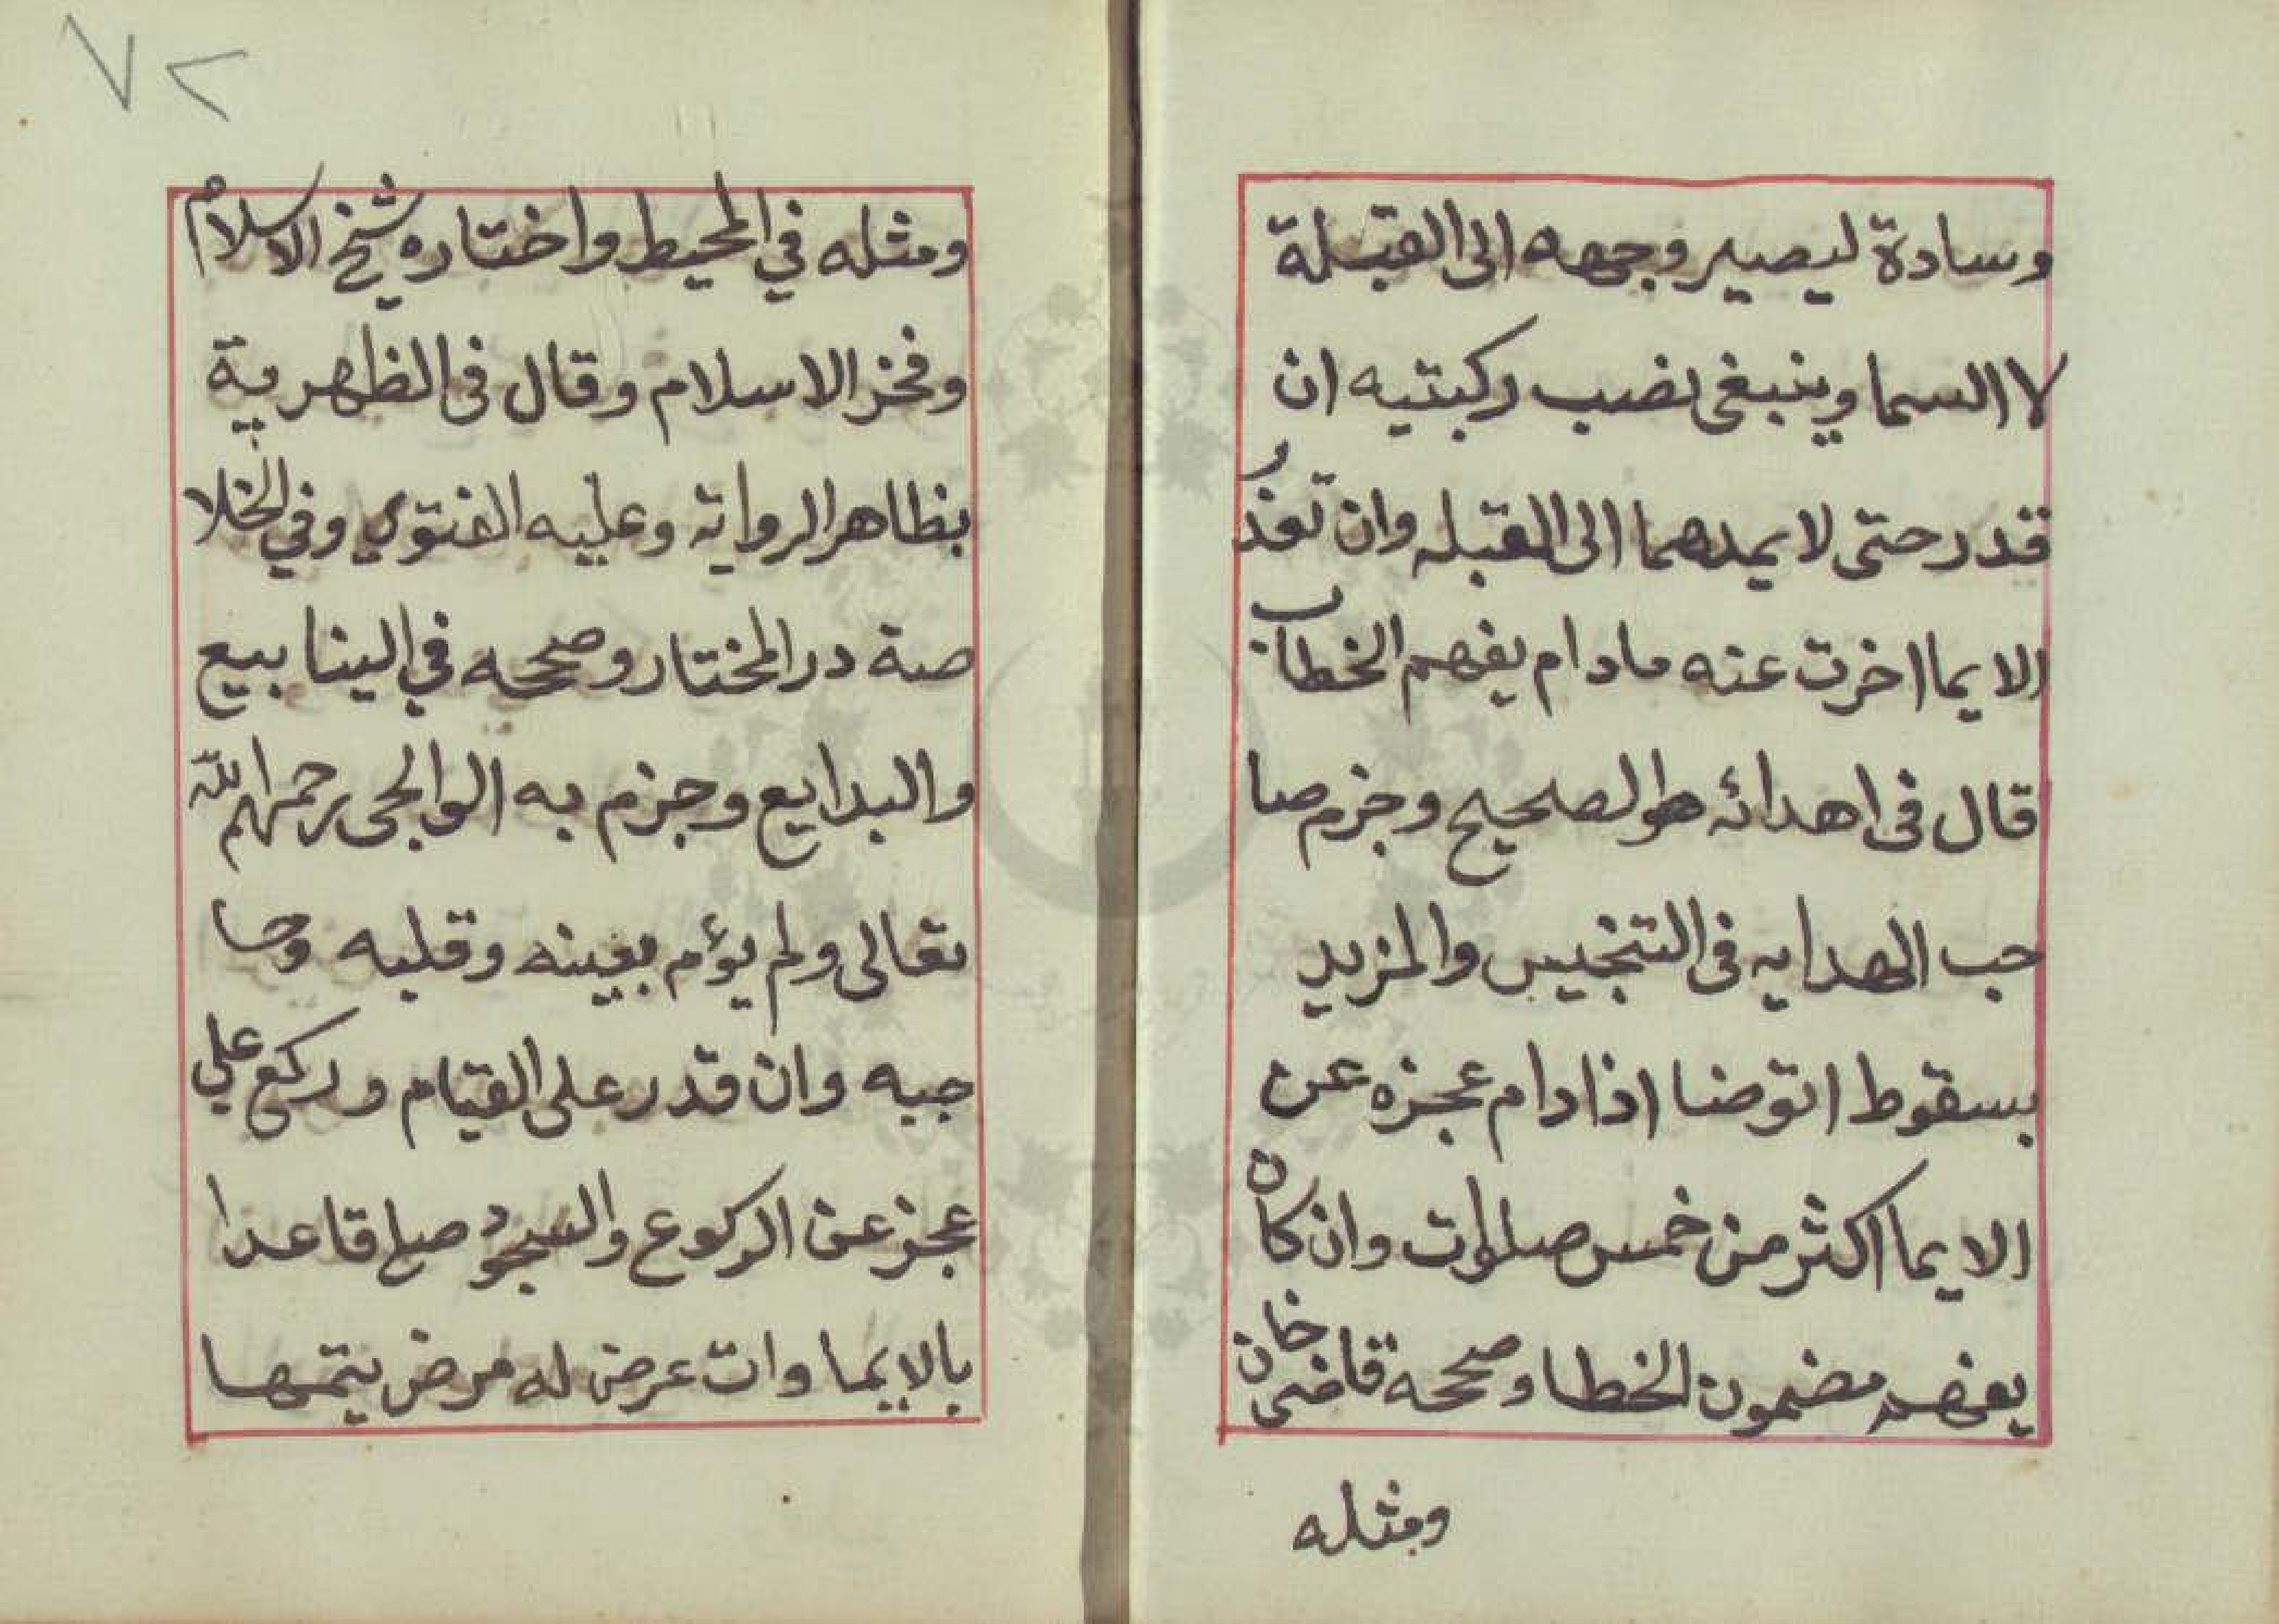 وسادة ليصير وجهه الى القبلة
لا السما وينبغى نصب ركبتيه ان
قدر حتى لا يمدهما الى القبله وان تعذر
الايما اخرت عنه مادام يفهم الخطاب
قال فى اهدائه هو الصحيح وجزم صا
حب الهدايه فى التنجيس والمزيد
بسقوط اتوضا اذا دام عجزه عن
الايما اكثر من خمس صلوات وان كان
يفهم مضمون الخطا وصححه قاضى خان
ومثله
٧٢
ومثله في المحيط واختاره شيخ الاسلام
وفخر الاسلام وقال فى الظهرية
بظاهر الرواية وعليه الفتوى وفي الخلا
صة در المختار وصححه في الينابيع
والبدايع وجزم به الوالجى رحمهم الله
تعالى ولم يؤم بعينه وقلبه وحا
جبه وان قدر على القيام وركع على
عجز عن الركوع والسجود صلى قاعدا
بالايما وان عرض له مرض يتمها